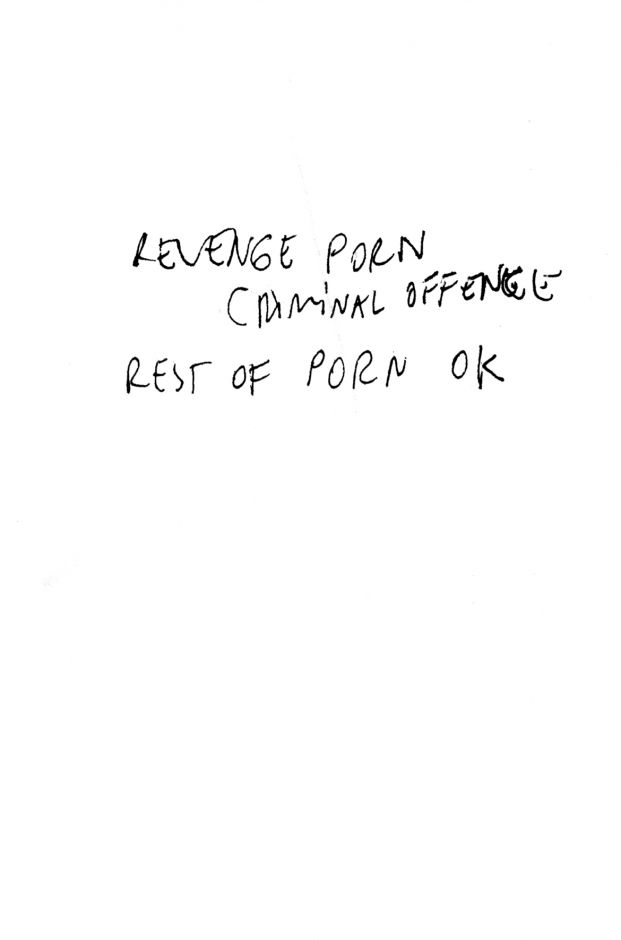 REVENGE PORN
CRIMINAL OFFENCE
REST OF PORN OK